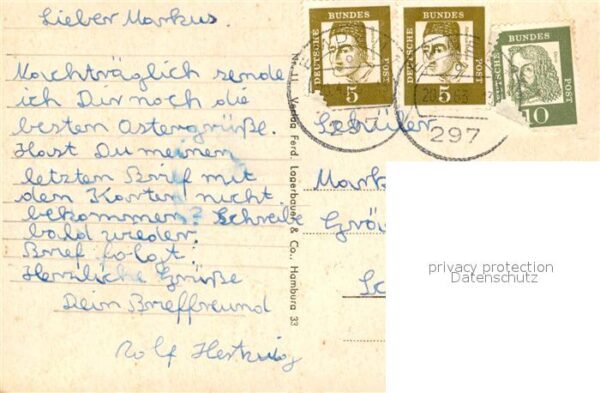 Lieber Markus.
Nachträglich sende
ich Dir noch die
besten Ostergrüße.
Hast Du meinen
letzten Brief mit
den Karten nicht
bekommen? Schreibe
bald wieder.
Brief folgt!
Herzliche Grüße
Dein Brieffreund
Rolf
No. 11 Verlag Ferd. Lagerbauer & Co., Hamburg 33
DEUTSCHE BUNDES POST
5
DEUTSCHE BUNDES POST
5
BUNDES POST
10
297
297
Schüler
Mark
Grö
Sc
privacy protection
Datenschutz